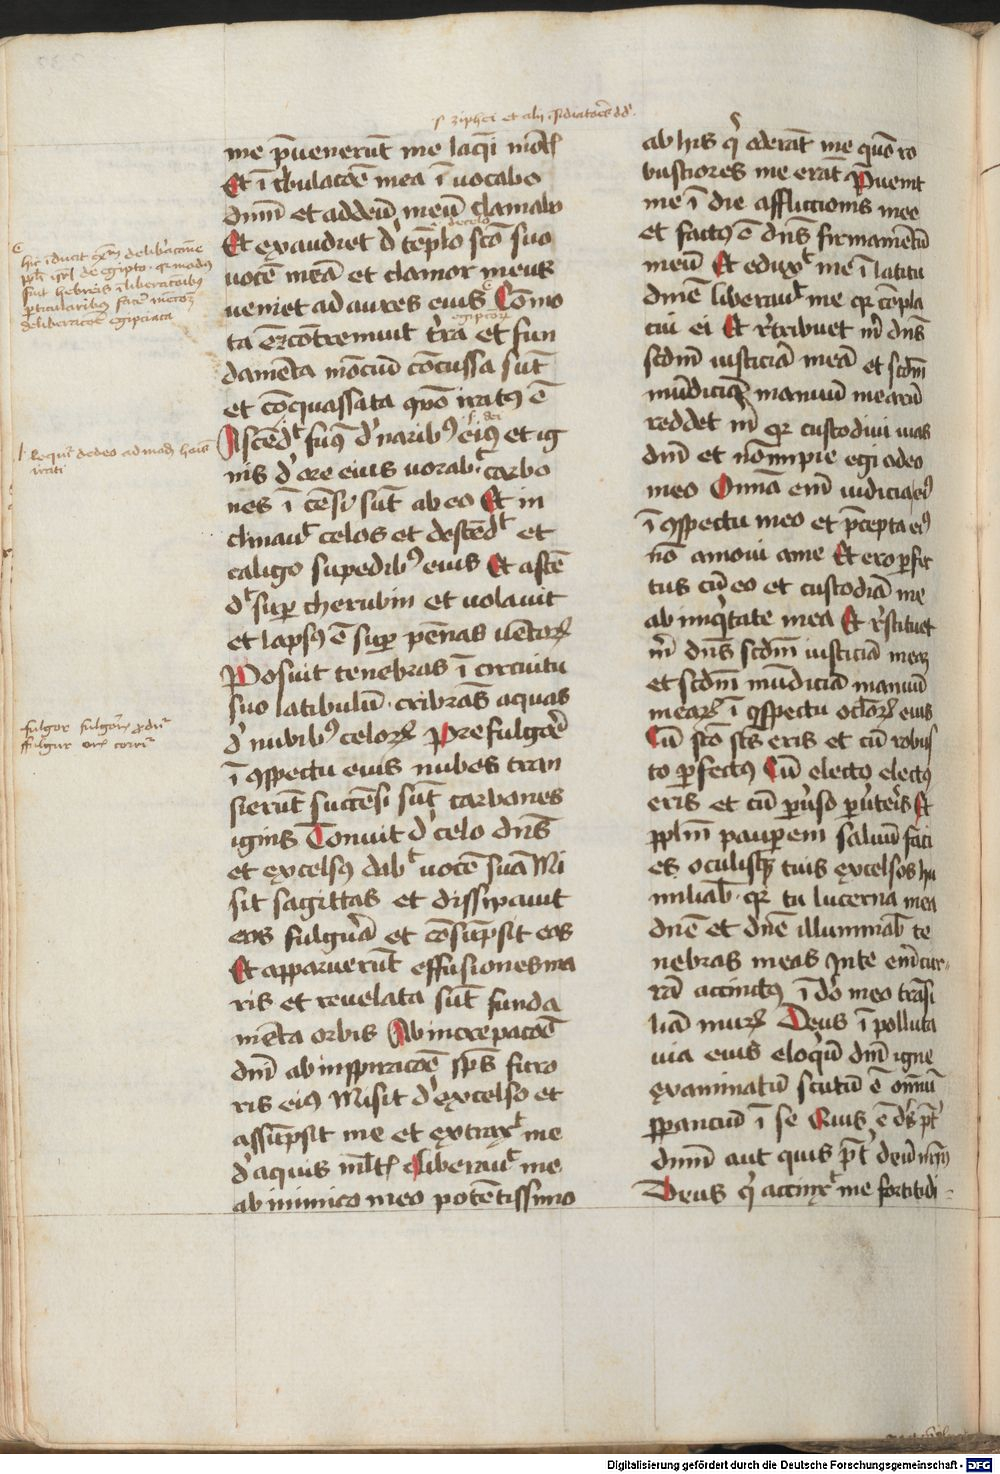 ſ ziphei et alij
me p̄uenerūt me laq̄i mort̄
Et ī tbulacōe mea ī uocabo
dnm̄ et ad deū meū clamabo
de celo
Et exaudiet d' tēplo scō suo
uocē meā et clamor meus
ueniet ad aures eius Cōmo
egiptior
ta ē et cōtremuit t'ra et fun
damēta mōciū cōcussa sūt
et cōquassata quō iratꝰ ē
s. dei
Ascēdit fumꝰ d' naribꝰ eiꝰ et ig
nis d' ore eius uorabit carbo
nes ī cēsi sūt ab eo Et in
clinauit celos et descēdit et
caligo s' pedibꝰ eius Et ascē
dit sup cherubin et uolauit
et lapsꝰ ē sup pēnas uētoꝝ
Posuit tenebras ī circuitu
suo latibulū cribrās aquas
d' nubibꝰ celoꝝ Pre fulgōe
ī ꝯspectu eius nubes tran
sierūt succēsi sūt carbones
ignis Tonuit d' celo dn̄s
et excelsꝰ dabit uocē suā Mi
sit sagittas et dissipauit
eos fulgura et cōsūpsit eos
Et apparuerūt effusiones ma
ris et reuelata sūt funda
mēta orbis Ab increpacōe
dn̄i ab inspiracōe sps furo
ris eiꝰ Misit d' excelso et
assūpsit me et extraxit me
d' aquis mlt̄ Liberauit me
ab inimico meo potētissimo
ab his q̄ oderāt me quō ro
bustiores me erāt P̄uenit
me ī die affliccionis mee
et factꝰ ē dn̄s firmamētū
meū Et eduxit me ī latitu
dinē liberauit me qꝛ cōpla
cui ei Et r̄tribuet m̄ dn̄s
scdm̄ iusticiā meā et scdm̄
mūdiciā manuū mearū
reddet m̄ qꝛ custodiui uias
dn̄i et nō īmpie egi a deo
meo Omnia em̄ iudicia eiꝰ
ī ꝯspectu meo et p̄cepta eiꝰ
nō amoui a me Et ero perfec
tus cū eo et custodiā me
ab iniq̄tate mea Et r̄stituet
m̄ dn̄s scdm̄ iusticiā meaꝫ
et scdm̄ mūdiciā manuū
mearꝝ ī ꝯspectu ocl̄orꝝ eius
Cū scō scs eris et cū robus
to perfectꝰ Cū electo electꝰ
eris et cū puerso puerteris Et
pplm̄ pauperem saluū faci
es oculisqꝫ tuis excelsos hu
miliab̄ qꝛ tu lucerna mea
dn̄e et dn̄e illuminab̄ te
nebras meas In te em̄ cur
rā accinctꝰ ī dō meo trāsi
liā murꝝ Deus ī polluta
uia eius eloq̄ū dn̄i igne
examinatū scutū ē omniū
sperancium ī se Quis ē ds̄ pt̄
dnm̄ aut quis pt̄ deū nrm̄
Deus q̄ accinxit me fortitudi
hic īducit
ppli isrl de egipto
fuit hebreis
deliberacōe egipciaca
Requir de deo ad mod hois
irati
fulgor fulgoris
fulgur
Digitalisierung gefördert durch die Deutsche Forschungsgemeinschaft - DFG